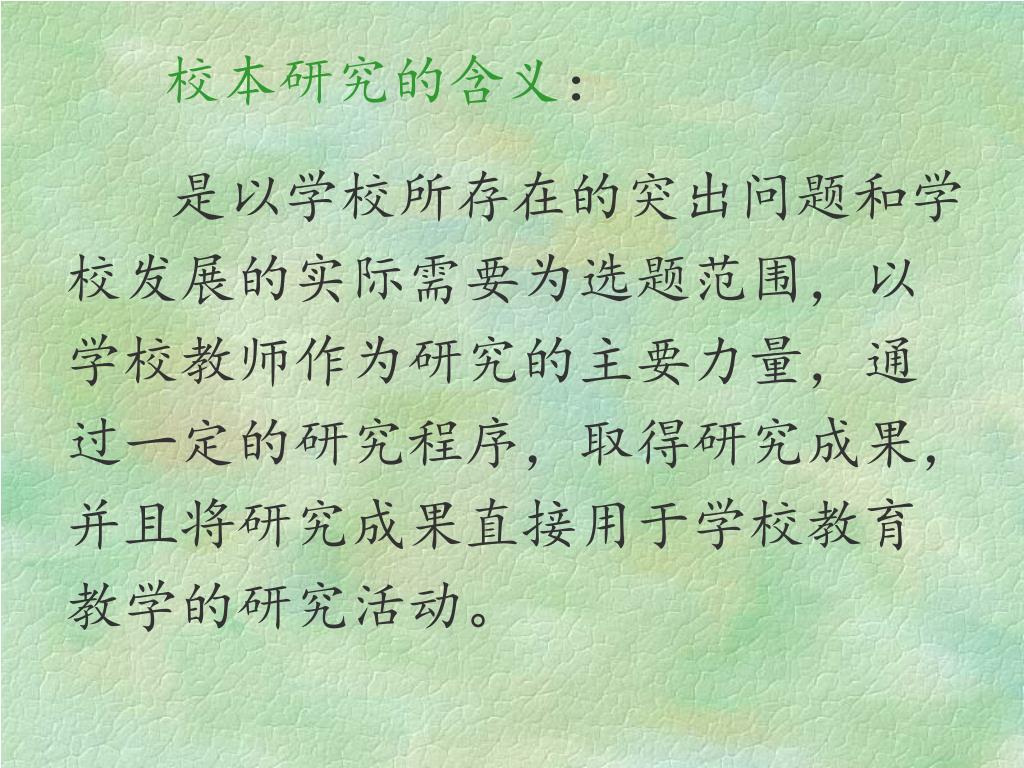 校本研究的含义：
是以学校所存在的突出问题和学
校发展的实际需要为选题范围，以
学校教师作为研究的主要力量，通
过一定的研究程序，取得研究成果，
并且将研究成果直接用于学校教育
教学的研究活动。